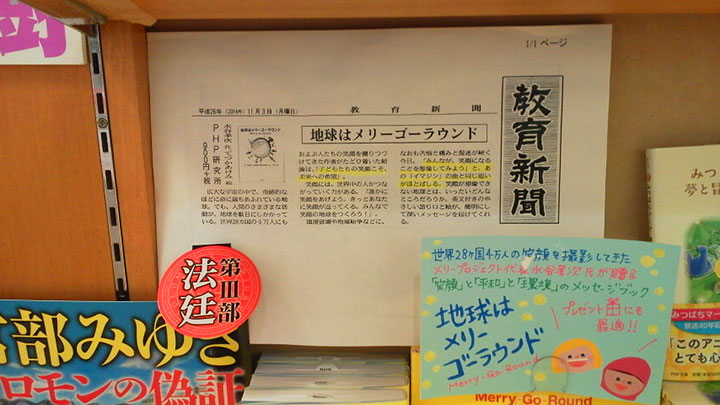 樹
1/1 ページ
平成26年(2014年)11月3日(月曜日)
教育新聞
教育新聞
地球はメリーゴーラウンド
水谷孝次 作、てづかあけみ 絵
PHP研究所
900円+税
広大な宇宙の中で、奇跡的な
ほどに命に満ちあふれている地
球。でも、人間のさまざまな活
動が、地球を駄目にしかかって
いる。世界28カ国の4万人にも
およぶ人たちの笑顔を撮りつづ
けてきた作者がたどり着いた結
論は、「子どもたちの笑顔こそ、
未来への希望」。
笑顔には、世界中の人がつな
がっていく力がある。「誰かに
笑顔をあげよう。きっとあなた
に笑顔が返ってくる。みんなで
笑顔の地球をつくろう！」。
環境破壊や地域紛争などに、
なおも苦悩と痛みと混迷が続く
今日。「みんなが、笑顔になる
ことを想像してみよう」と、あ
の「イマジン」の曲と同じ思い
がほとばしる。笑顔が想像でき
ない地球とは、いったいどんな
ところだろうか。英文付きのや
さしい語り口と絵が、簡明にし
て深いメッセージを届けてくれ
る。
第Ⅲ部
法廷
宮部みゆき
ロモンの偽証
世界28ヶ国4万人の笑顔を撮影してきた
メリープロジェクト代表水谷孝次氏が贈る
"笑顔"と"平和"と"環境"のメッセージブック
地球は
メリー
ゴーラウンド
Merry-Go-Round
プレゼントにも
最適!!
Merry-Go-Round
みつ
夢と冒
みつばちマー
放送40年
「このアニ
とても心